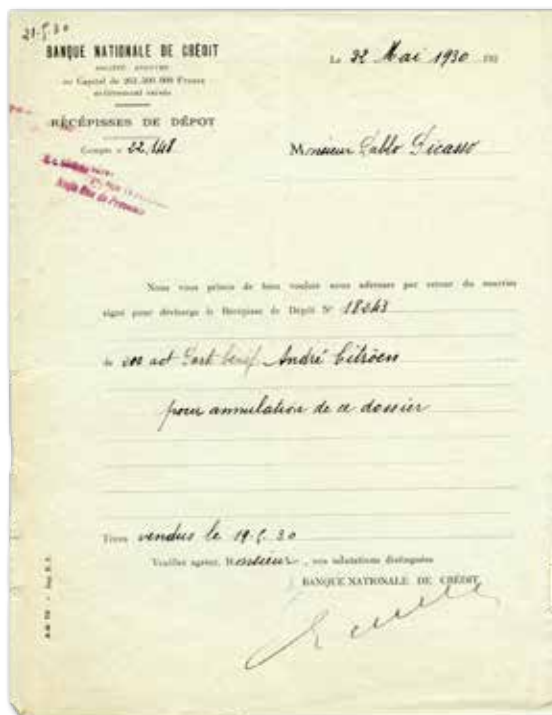 21-5-30
BANQUE NATIONALE DE CRÉDIT
SOCIÉTÉ ANONYME
au Capital de 262.500.000 Francs
entièrement versés
RÉCÉPISSES DE DÉPOT
Compte n° 22.148
Angle Rue de Provence
Le 22 Mai 1930 193
Monsieur Pablo Picasso
Nous vous prions de bien vouloir nous adresser par retour du courrier
signé pour décharge le Récépissé de Dépôt N° 18043
de 200 act Part bénéf. André Citröen
pour annulation de ce dossier
Titres vendus le 19.5.30
Veuillez agréer, Monsieur, nos salutations distinguées
BANQUE NATIONALE DE CRÉDIT